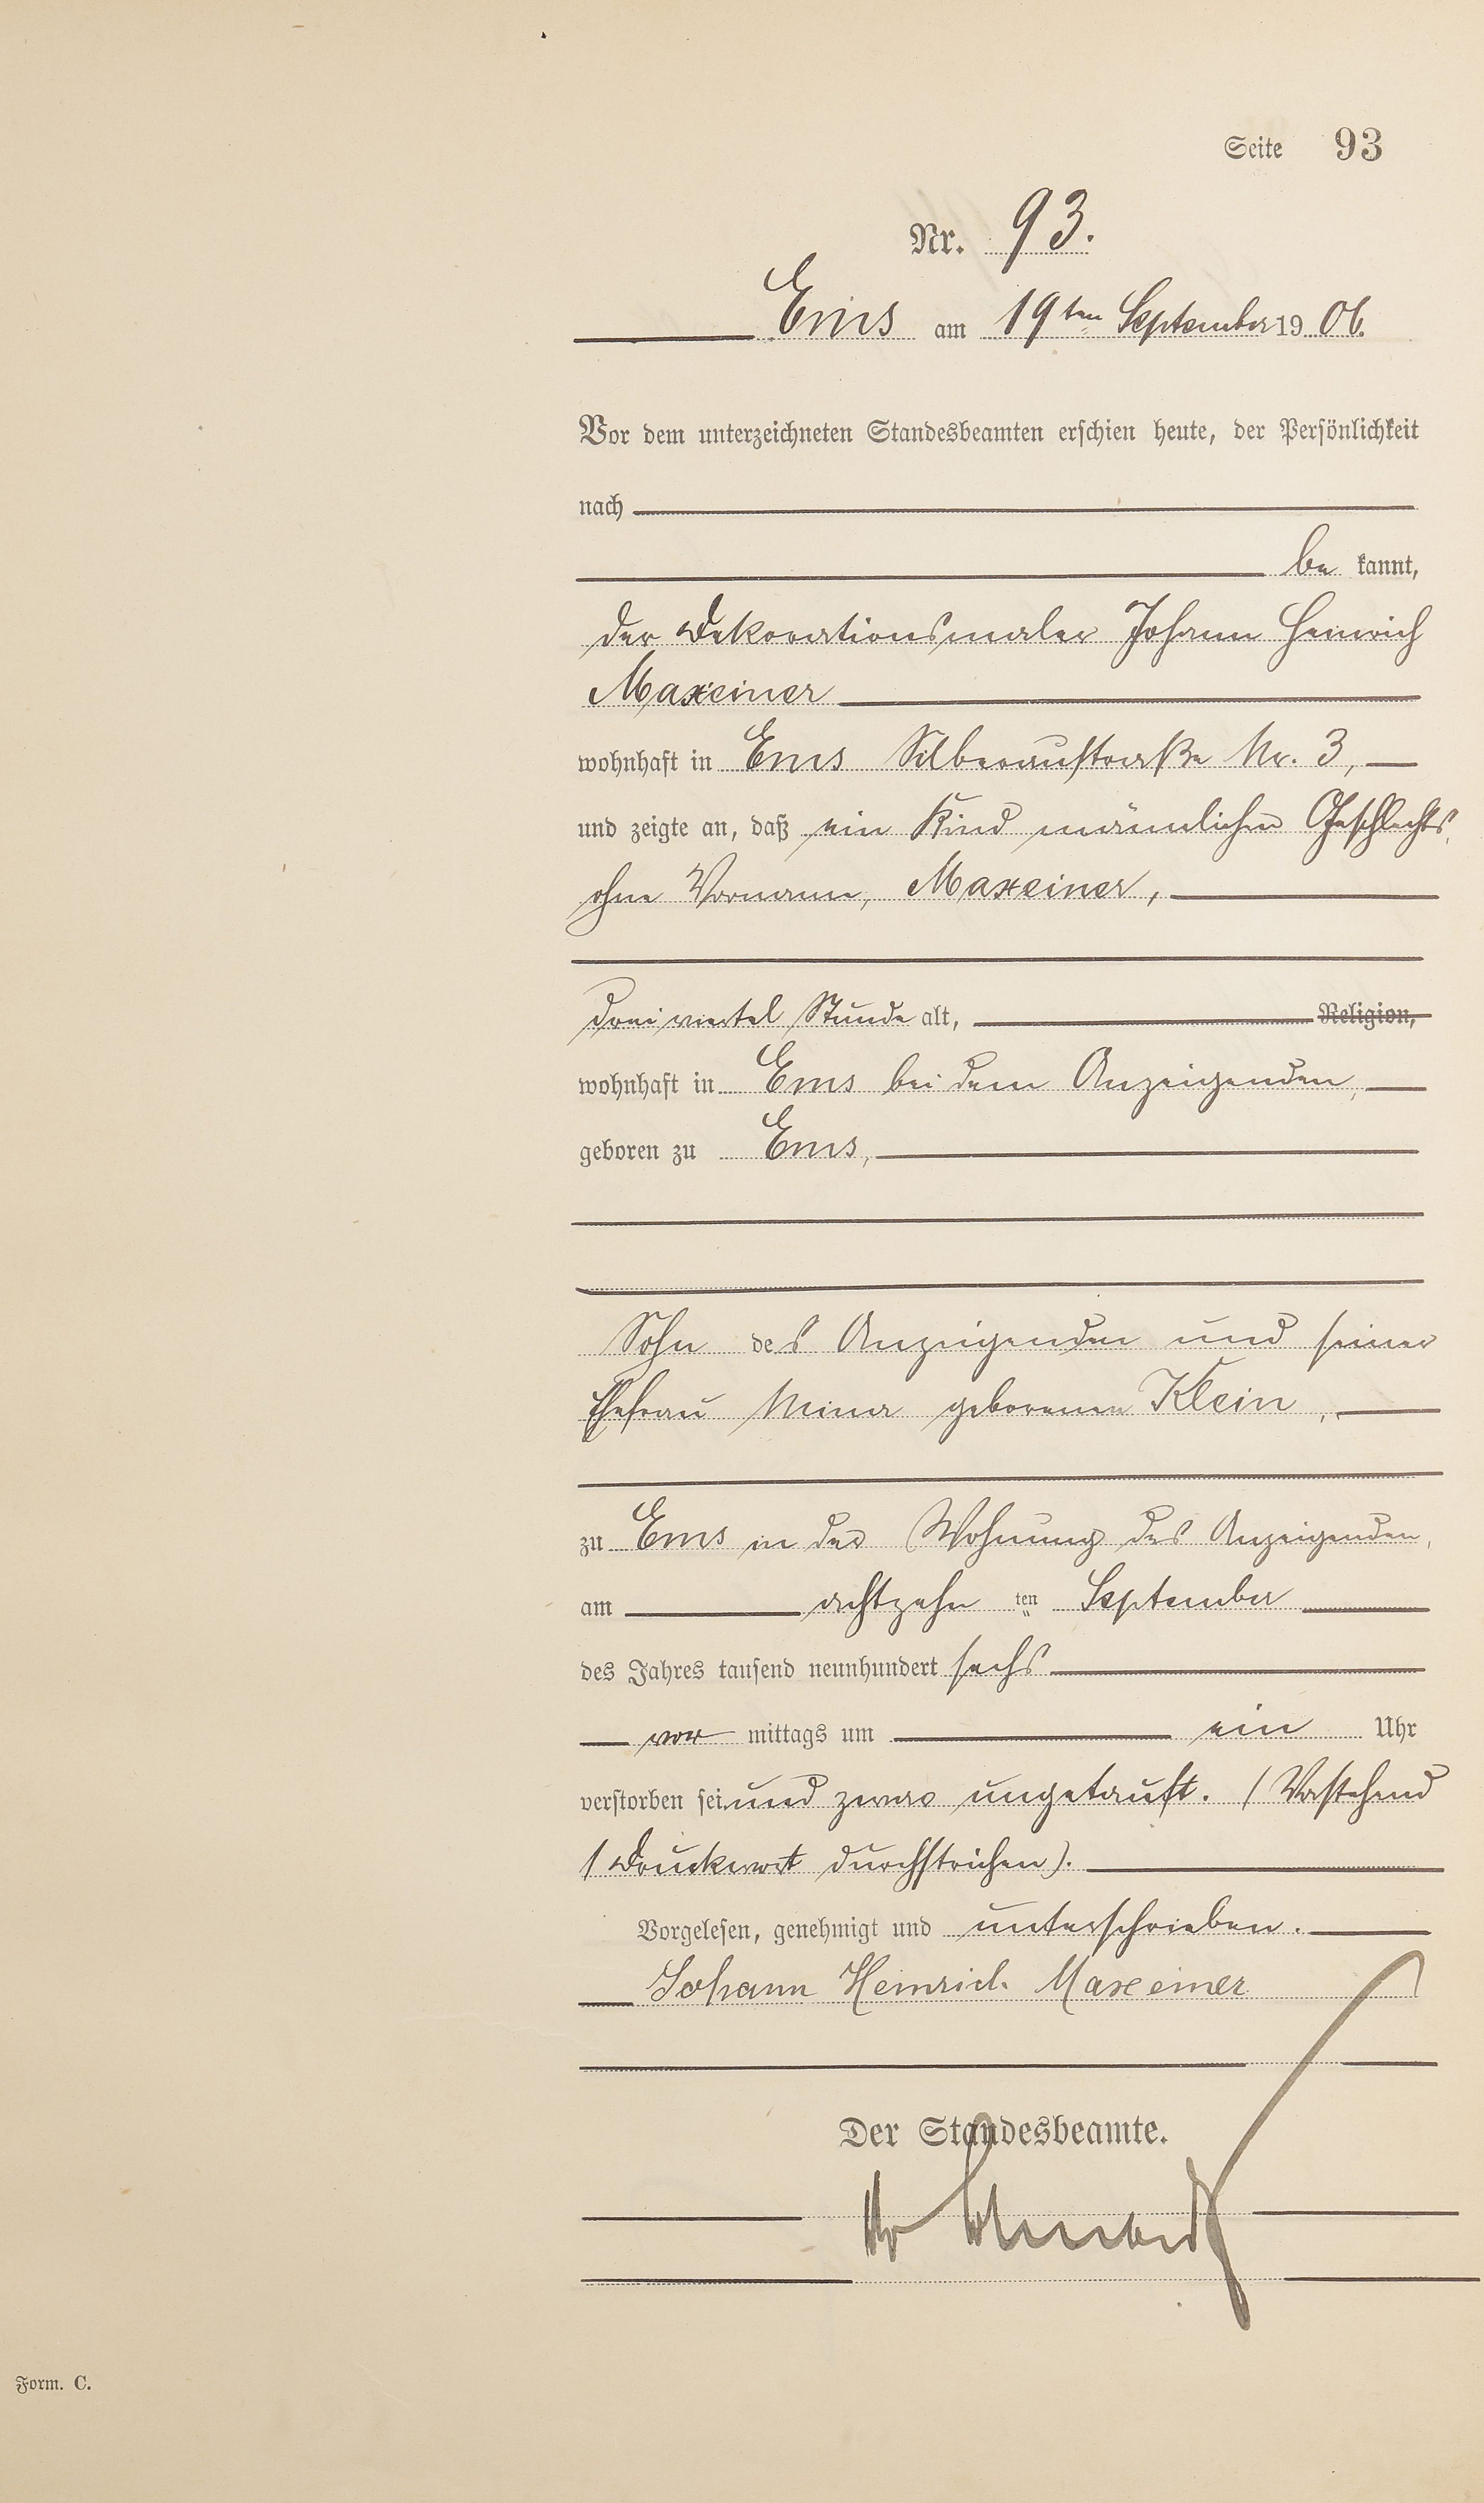 Seite 93
Nr. 93.
Ems am 19ten September 1906.
Vor dem unterzeichneten Standesbeamten erschien heute, der Persönlichkeit
nach
be kannt,
der Dekorationsmaler Johann Heinrich
Maxeiner
wohnhaft in Ems Silberaustraße Nr. 3,
und zeigte an, daß ein Kind männlichen Geschlechts,
ohne Vornamen, Maxeiner,
dreiviertel Stunde alt, Religion,
wohnhaft in Ems bei dem Anzeigenden,
geboren zu Ems,
Sohn des Anzeigenden und seiner
Ehefrau Mina geborenen Klein,
zu Ems in der Wohnung des Anzeigenden,
am achtzehn ten September
des Jahres tausend neunhundert sechs
vor mittags um ein Uhr
verstorben sei und zwar ungetauft. (Vorstehend
1 Druckwort durchstrichen).
Vorgelesen, genehmigt und unterschrieben.
Johann Heinrich Maxeiner
Der Standesbeamte.
Form. C.